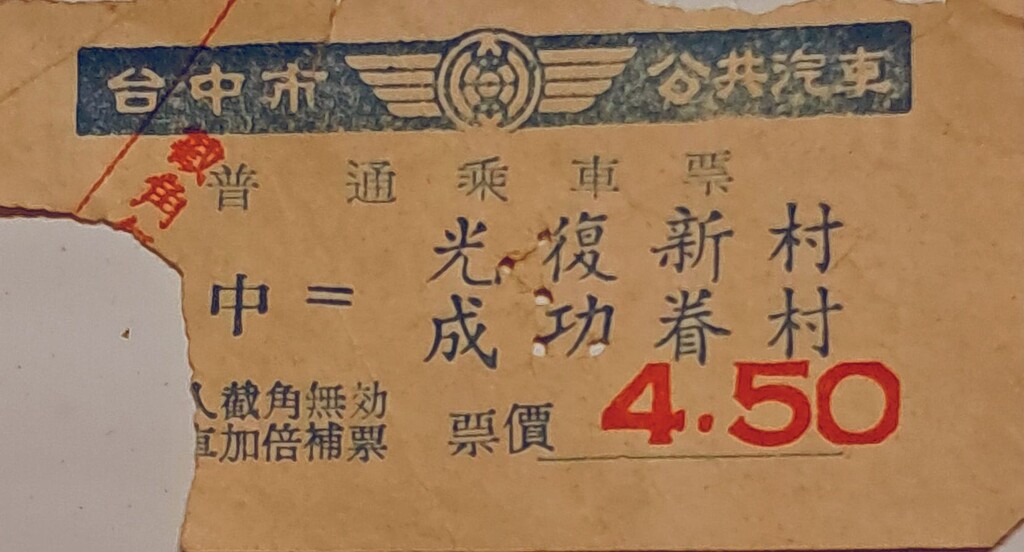 台中市 公共汽車
截角
普通乘車票
光復新村
中＝
成功眷村
截角無効
加倍補票
票價 4.50